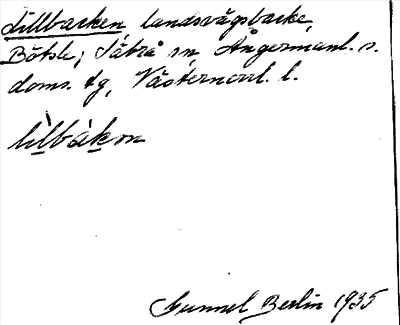 Lillbacken, landsvägsbacke,
Bölsle, Säbrå sn, Ångermanl. s.
doms. tg, Västernorrl. l.
lìlbàkən
Gunnel Berlin 1935